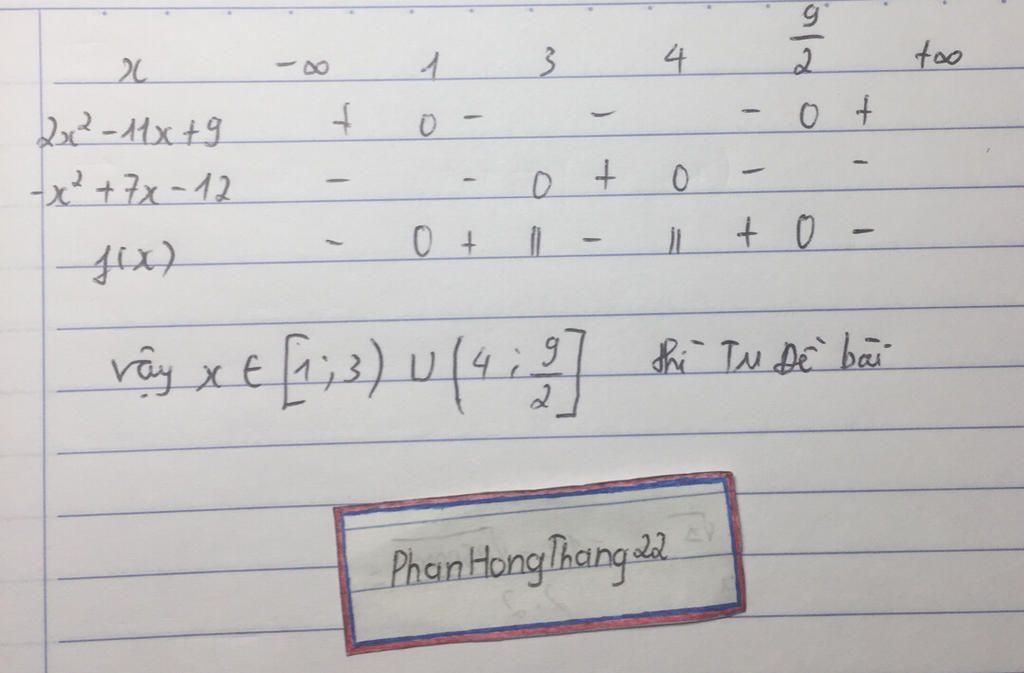 x -∞ 1 3 4 9/2 +∞
2x² - 11x + 9 + 0 - - - 0 +
-x² + 7x - 12 - - 0 + 0 - -
f(x) - 0 + || - || + 0 -
Vậy x ∈ [1; 3) ∪ (4; 9/2] thì TM Đề bài
PhanHongThang22